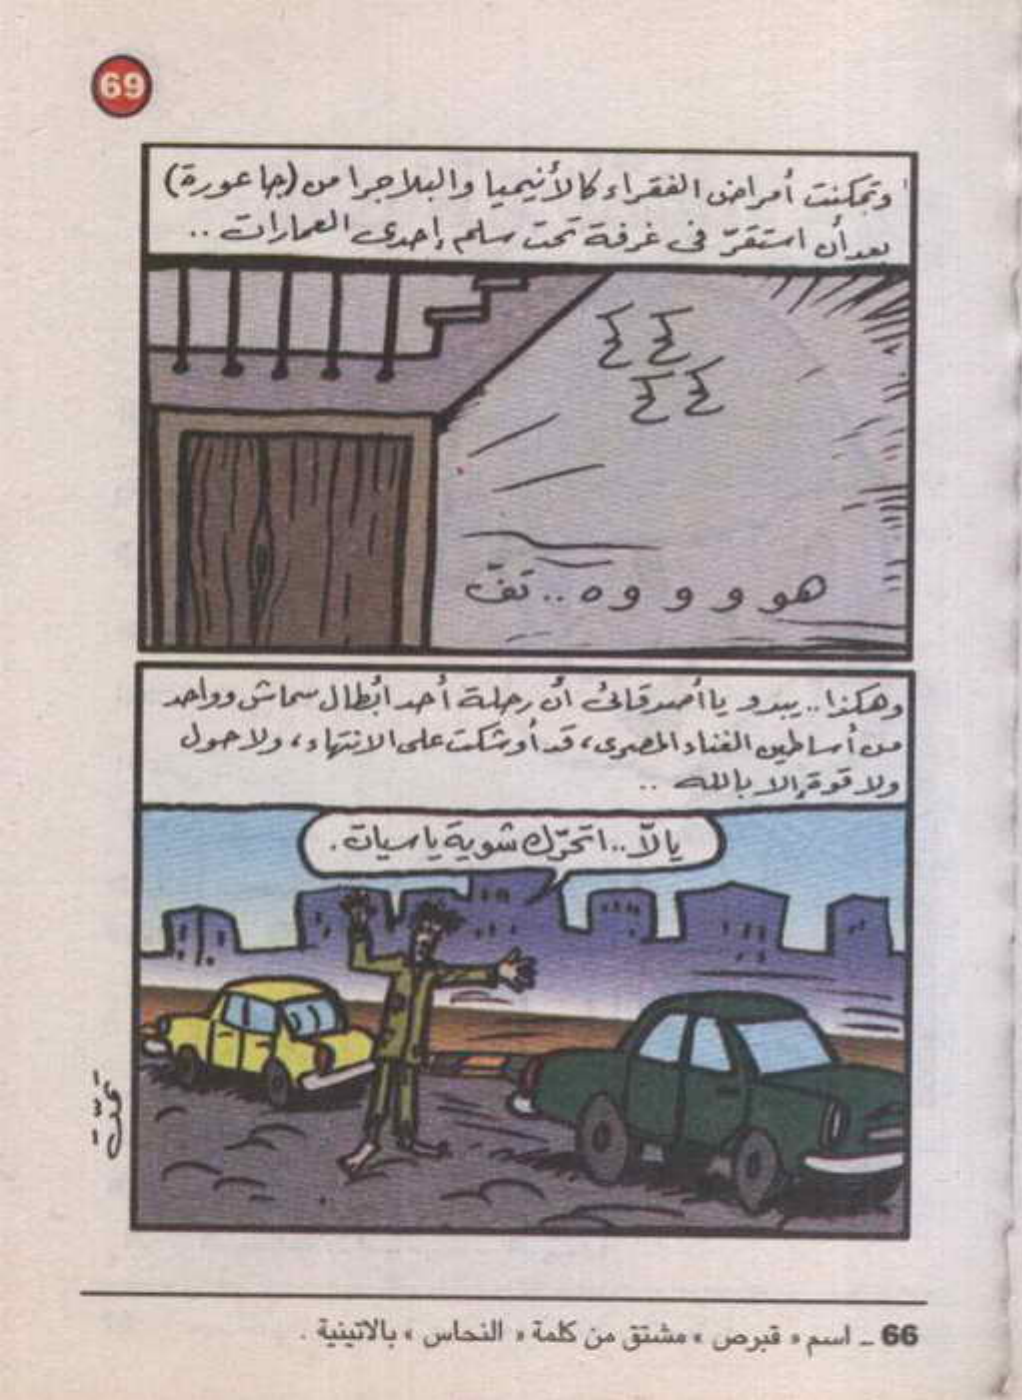 69
وتمكنت أمراض الفقراء كالأنيميا والبلاجرا من (جاعورة)
بعد أن استقرّ فى غرفة تحت سلم إحدى العمارات ..
كح كح
كح كح
هو و و وه .. تفّ
وهكذا .. يبدو يا أصدقائى أن رحلة أحد أبطال سماش وواحد
من أساطين الغناء المصرى، قد أوشكت على الانتهاء، ولا حول
ولا قوة إلا بالله ..
يالاّ .. اتحرّك شوية يا سيات .
66 ـ اسم « قبرص » مشتق من كلمة « النحاس » بالاتينية .